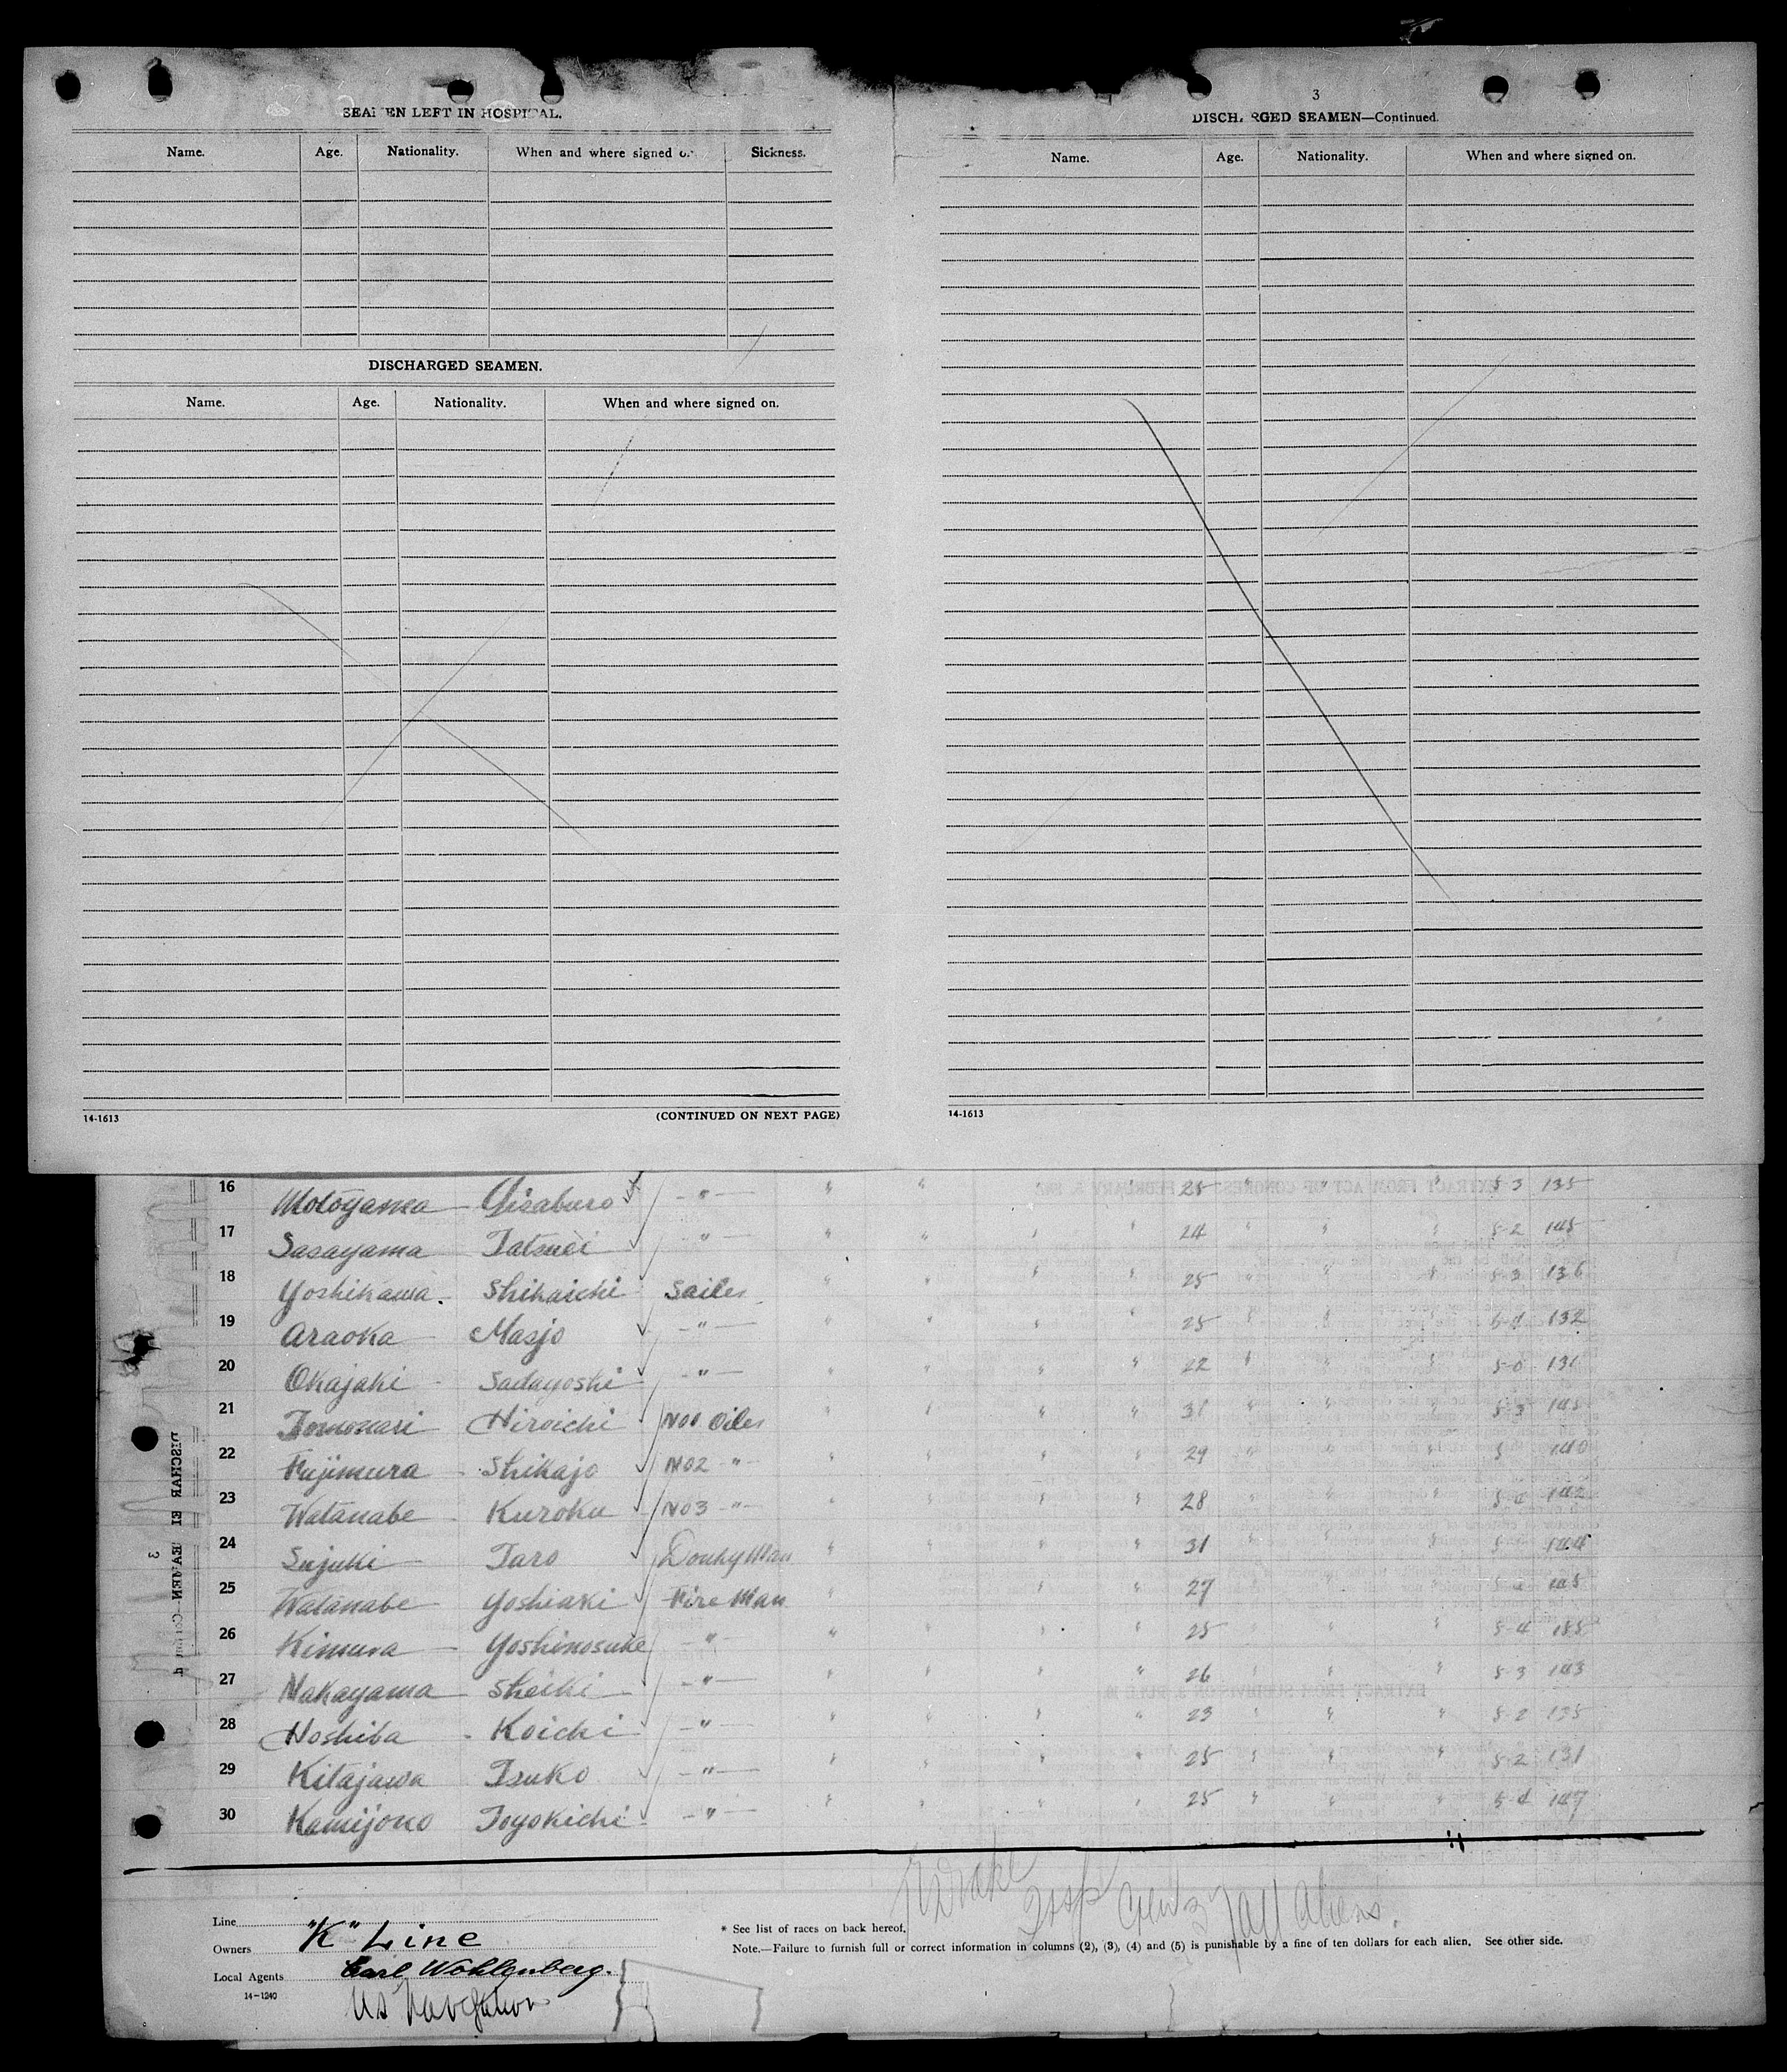 SEAMEN LEFT IN HOSPITAL.
Name. Age. Nationality. When and where signed o. Sickness.
DISCHARGED SEAMEN.
Name. Age. Nationality. When and where signed on.
14-1613 (CONTINUED ON NEXT PAGE)
3
DISCHARGED SEAMEN—Continued.
Name. Age. Nationality. When and where signed on.
14-1613
16 Motoyama Gisaburo " " " " 25 " " " 5-3 135
17 Sasayama Tatsuei " " " " " 24 " " " 5-2 145
18 Yoshikawa. Shikaichi Sailer " " " " 25 " " " 5-3 136
19 Araoka Masjo " " " " " 25 " " " 5-4 132
20 Okajaki Sadayoshi " " " " " 22 " " " 5-0 131
21 Tomonari Hiroichi No1 Oiler " " " " 31 " " " 5-3 145
22 Fujimura Shikajo No2 " " " " " 29 " " " 5 140
23 Watanabe Kuroku No3 " " " " " 28 " " " 142
24 Sujuki Taro DonkyMan " " " " 31 " " " 144
25 Watanabe Yoshiaki Fire Man " " " 27 " " " 145
26 Kimura Yoshinosuke " " " " " 25 " " " 5-4 155
27 Nakayama Sheiki " " " " " 26 " " " 5-3 143
28 Hoshiba Koichi " " " " " 23 " " " 5-2 135
29 Kitajawa Tsuko " " " " " 25 " " " 5-2 131
30 Kamijono Toyokichi " " " " " 25 " " " 5-4 147
Line
Owners "K" Line
Local Agents Carl Wohlenberg.
14-1240
US Navigation
* See list of races on back hereof.
Note.—Failure to furnish full or correct information in columns (2), (3), (4) and (5) is punishable by a fine of ten dollars for each alien. See other side.